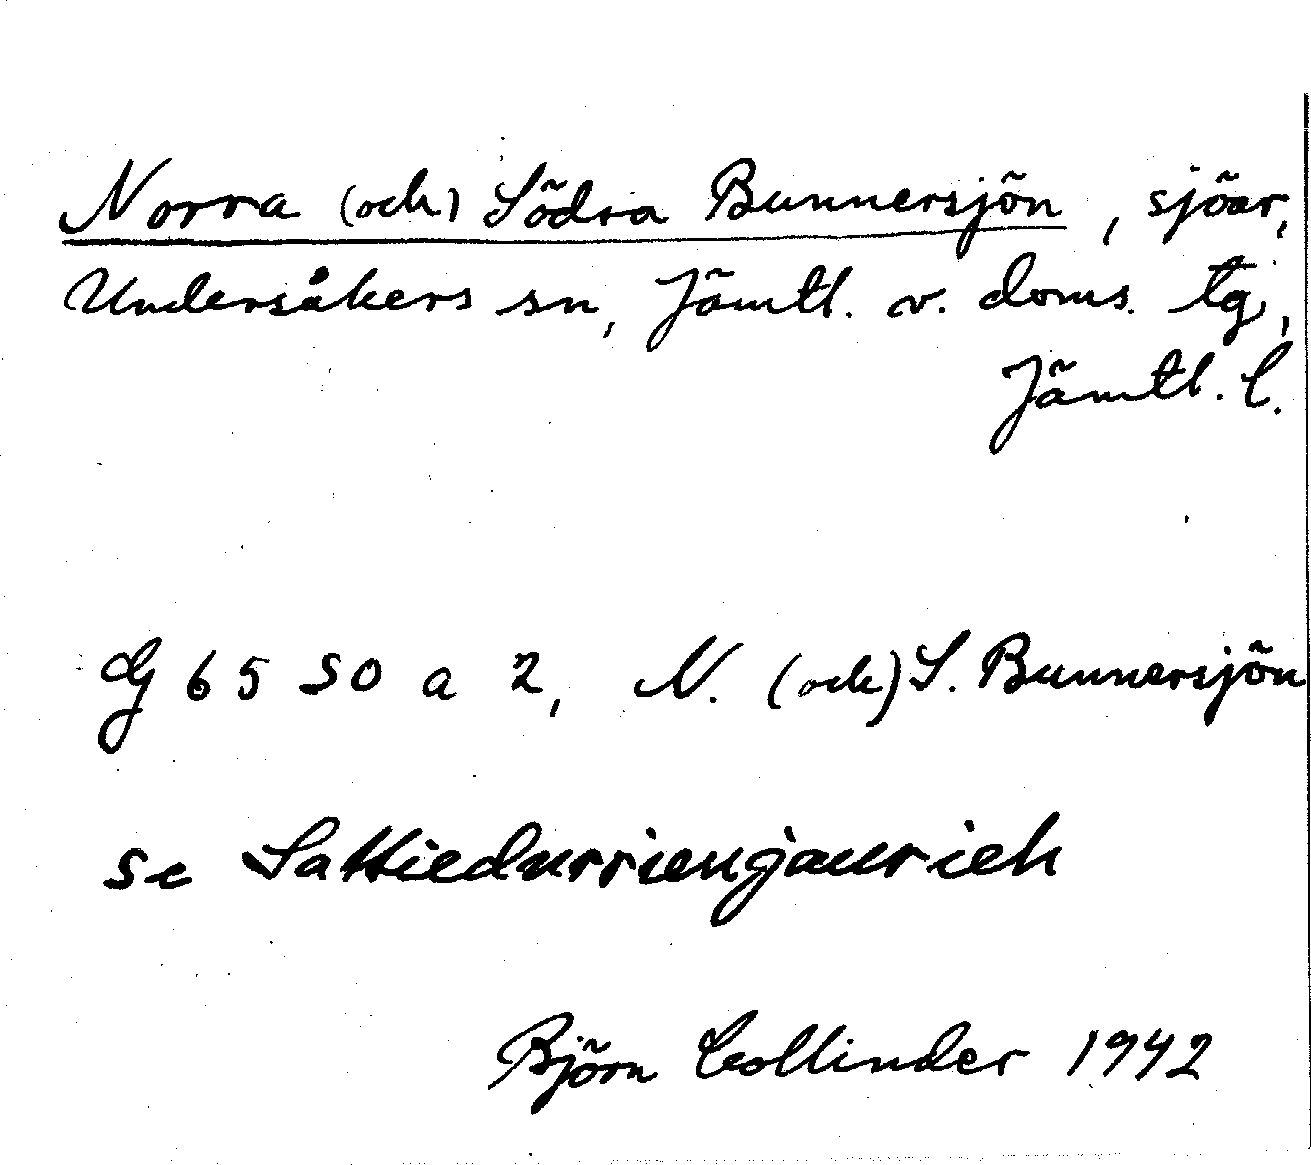 Norra (och) Södra Bunnersjön, sjöar,
Undersåkers sn, Jämtl. v. doms. tg,
Jämtl. l.
G 65 50 a 2, N. (och) S. Bunnersjön
se Sattiedurriengjaurieh
Björn Collinder 1942